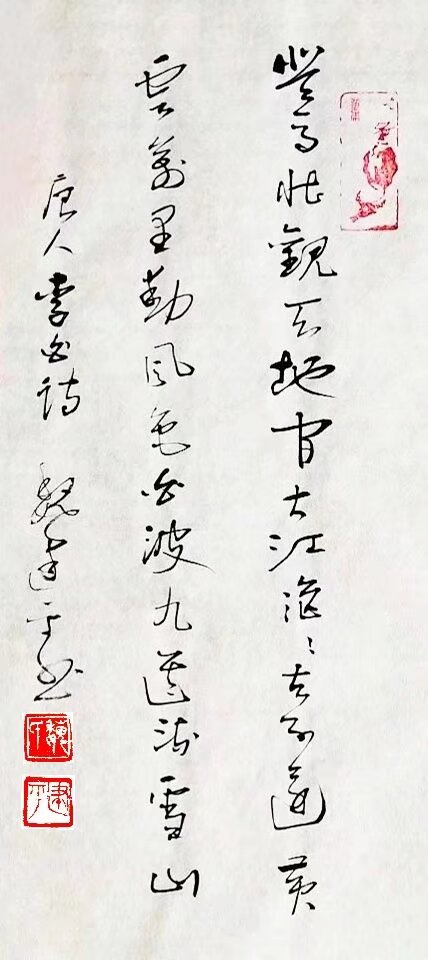 登高壯觀天地間大江茫〻去不還黃
雲萬里動風色白波九道流雪山
唐人李白詩 魏建平书
魏氏
建平